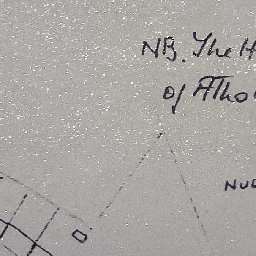 NB. The H
of Atho
NUC